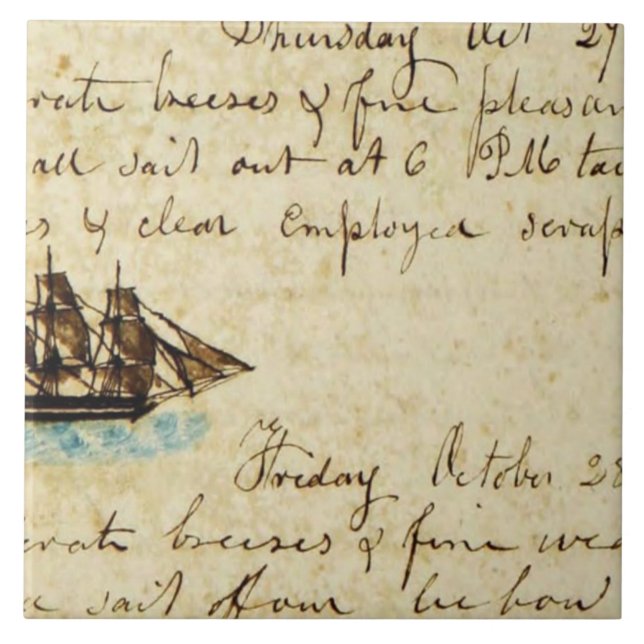 Thursday Oct 27
rate breeses & fine pleasan
all sail out at 6 PM tac
s & clear Employed scrap
Friday October 28
erate breeses & fine wea
sail off our lee bow